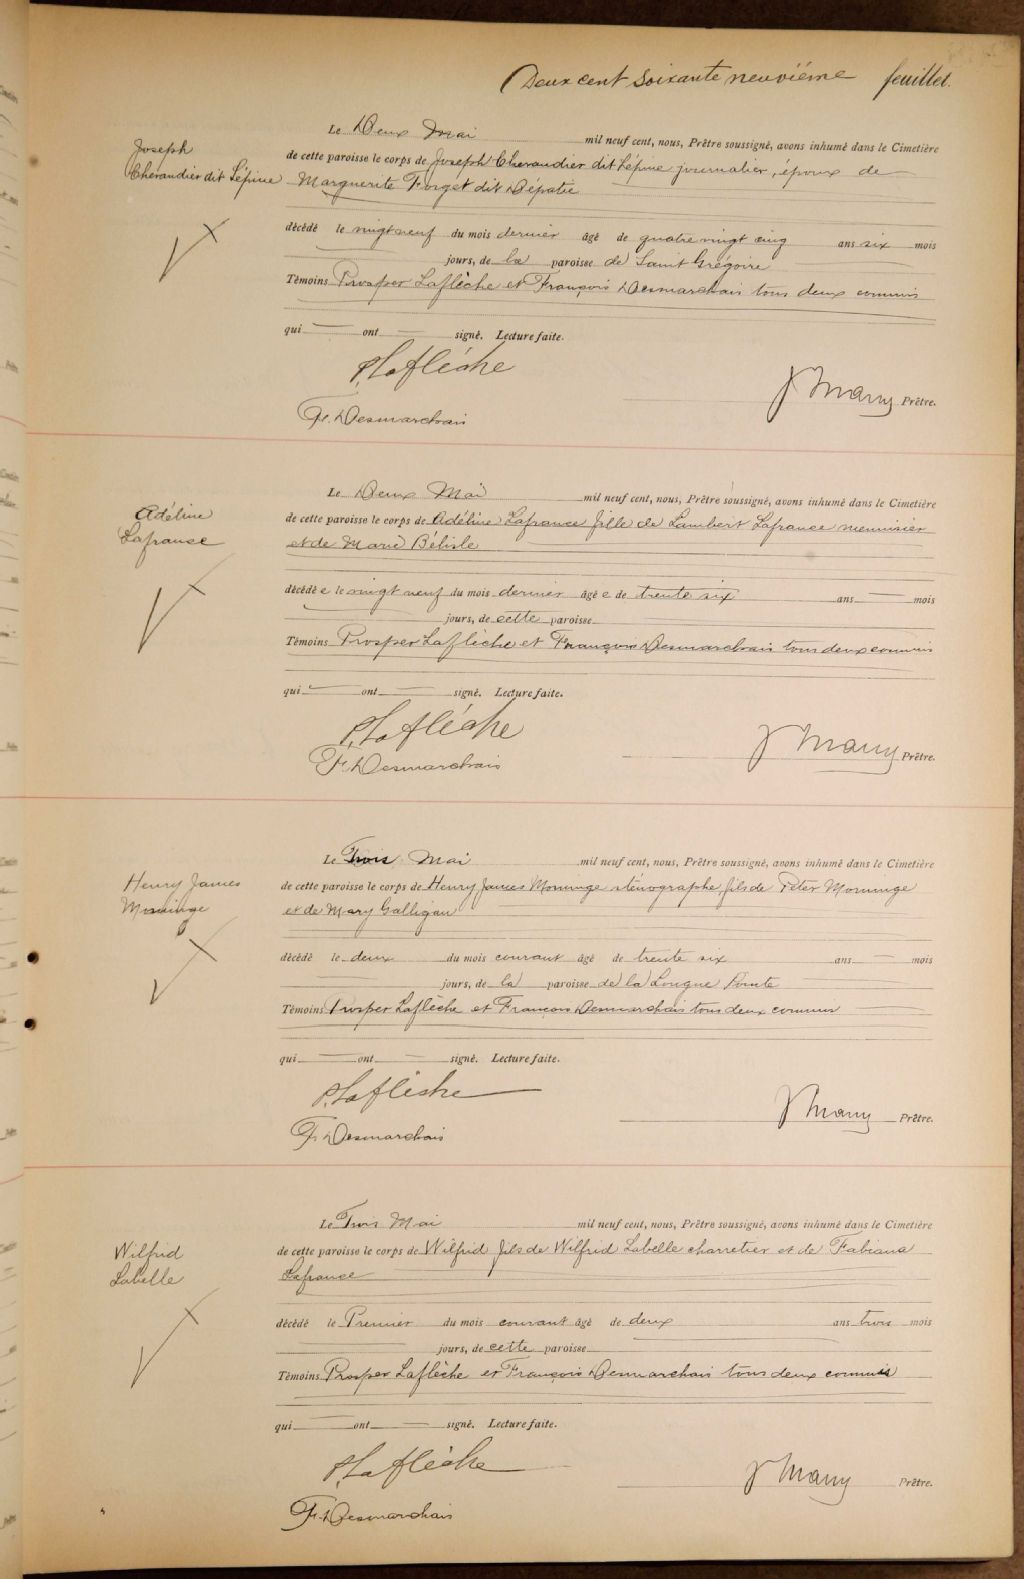 Deux cent soixante neuvième feuillet.
Joseph
Cherandier dit Lépine
Le Deux Mai mil neuf cent, nous, Prêtre soussigné, avons inhumé dans le Cimetière
de cette paroisse le corps de Joseph Cherandier dit Lépine journalier, époux de
Marguerite Forget dit Dépatie
décédé le vingt neuf du mois dernier âgé de quatre vingt cinq ans six mois
jours, de la paroisse de Saint Grégoire
Témoins Prosper Laflèche et François Desmarchais tous deux commis
qui ont signé. Lecture faite.
P. Laflèche
J Many Prêtre.
Fr. Desmarchais
Adéline
Lafrance
Le Deux Mai mil neuf cent, nous, Prêtre soussigné, avons inhumé dans le Cimetière
de cette paroisse le corps de Adéline Lafrance fille de Lambert Lafrance menuisier
et de Marie Bélisle
décédé e le vingt neuf du mois dernier âgé e de trente six ans mois
jours, de cette paroisse
Témoins Prosper Laflèche et François Desmarchais tous deux commis
qui ont signé. Lecture faite.
P. Laflèche
J Many Prêtre.
F. Desmarchais
Henry James
Morninge
Le Trois Mai mil neuf cent, nous, Prêtre soussigné, avons inhumé dans le Cimetière
de cette paroisse le corps de Henry James Morninge sténographe fils de Peter Morninge
et de Mary Galligan
décédé le deux du mois courant âgé de trente six ans mois
jours, de la paroisse de la Longue Pointe
Témoins Prosper Laflèche et François Desmarchais tous deux commis
qui ont signé. Lecture faite.
P. Laflèche
J Many Prêtre.
F. Desmarchais
Wilfrid
Labelle
Le Trois Mai mil neuf cent, nous, Prêtre soussigné, avons inhumé dans le Cimetière
de cette paroisse le corps de Wilfrid fils de Wilfrid Labelle charretier et de Fabiana
Lafrance
décédé le Premier du mois courant âgé de deux ans trois mois
jours, de cette paroisse
Témoins Prosper Laflèche et François Desmarchais tous deux commis
qui ont signé. Lecture faite.
P. Laflèche
J Many Prêtre.
F. Desmarchais